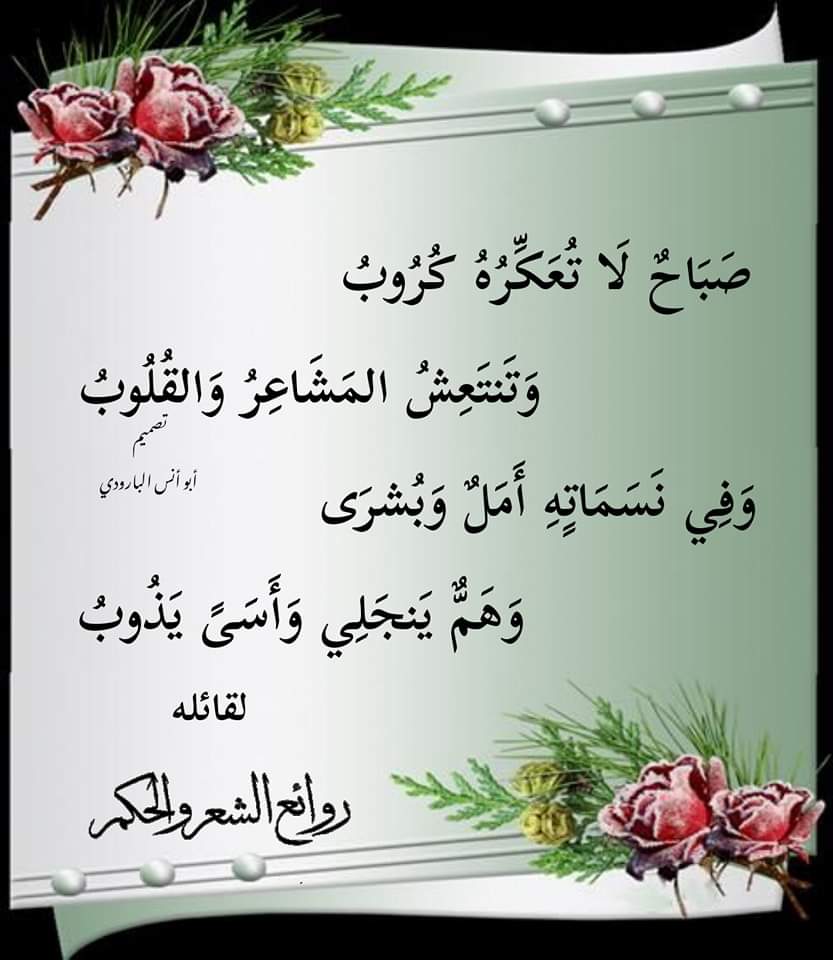 صَبَاحٌ لَا تُعَكِّرُهُ كُرُوبُ
وَتَنتَعِشُ المَشَاعِرُ وَالقُلُوبُ
تصميم
أبو أنس البارودي
وَفِي نَسَمَاتٍهِ أَمَلٌ وَبُشرَى
وَهَمٌّ يَنجَلِي وَأَسَىً يَذُوبُ
لقائله
روائع الشعر والحكم